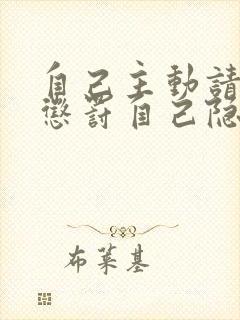 自己主動請
懲罰自己隐
布莱基